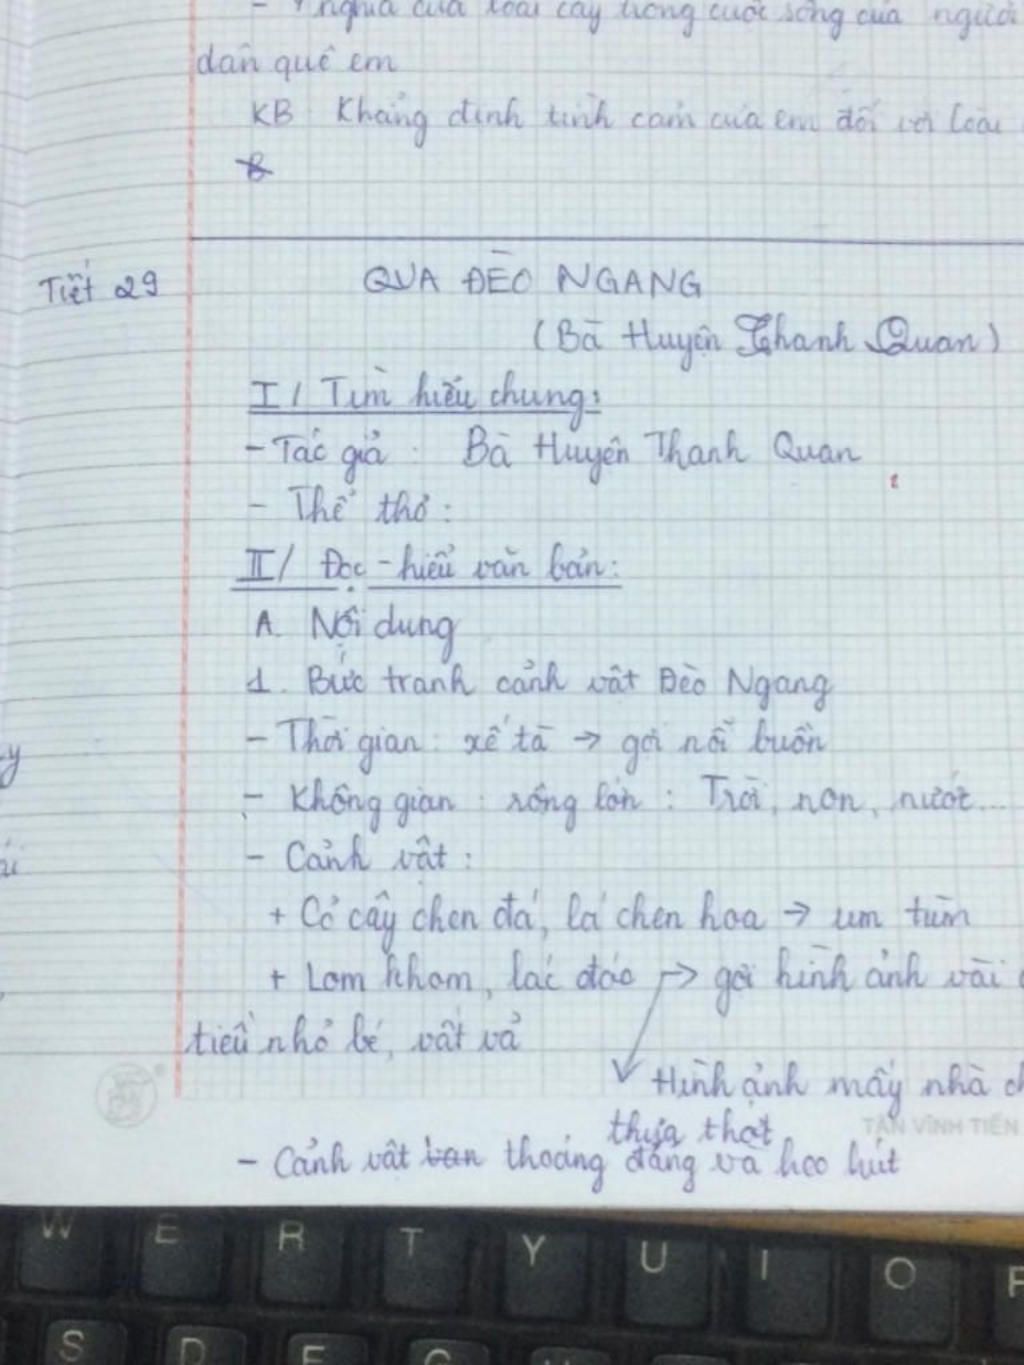 - Ý nghĩa của loài cây trong cuộc sống của người
dân quê em
KB Khẳng định tình cảm của em đối với loài
Tiết 29
QUA ĐÈO NGANG
(Bà Huyện Thanh Quan)
I/ Tìm hiểu chung:
- Tác giả : Bà Huyện Thanh Quan
- Thể thơ :
II/ Đọc - hiểu văn bản:
A. Nội dung
1. Bức tranh cảnh vật Đèo Ngang
- Thời gian : xế tà → gợi nỗi buồn
- Không gian : rộng lớn : Trời, non, nước...
- Cảnh vật :
+ Cỏ cây chen đá, lá chen hoa → um tùm
+ Lom khom, lác đác → gợi hình ảnh vài
tiều nhỏ bé, vất vả
Hình ảnh mấy nhà
thưa thớt
TÂN VĨNH TIẾN
- Cảnh vật thoáng đãng và heo hút
W E R T Y U I O P
S D F G